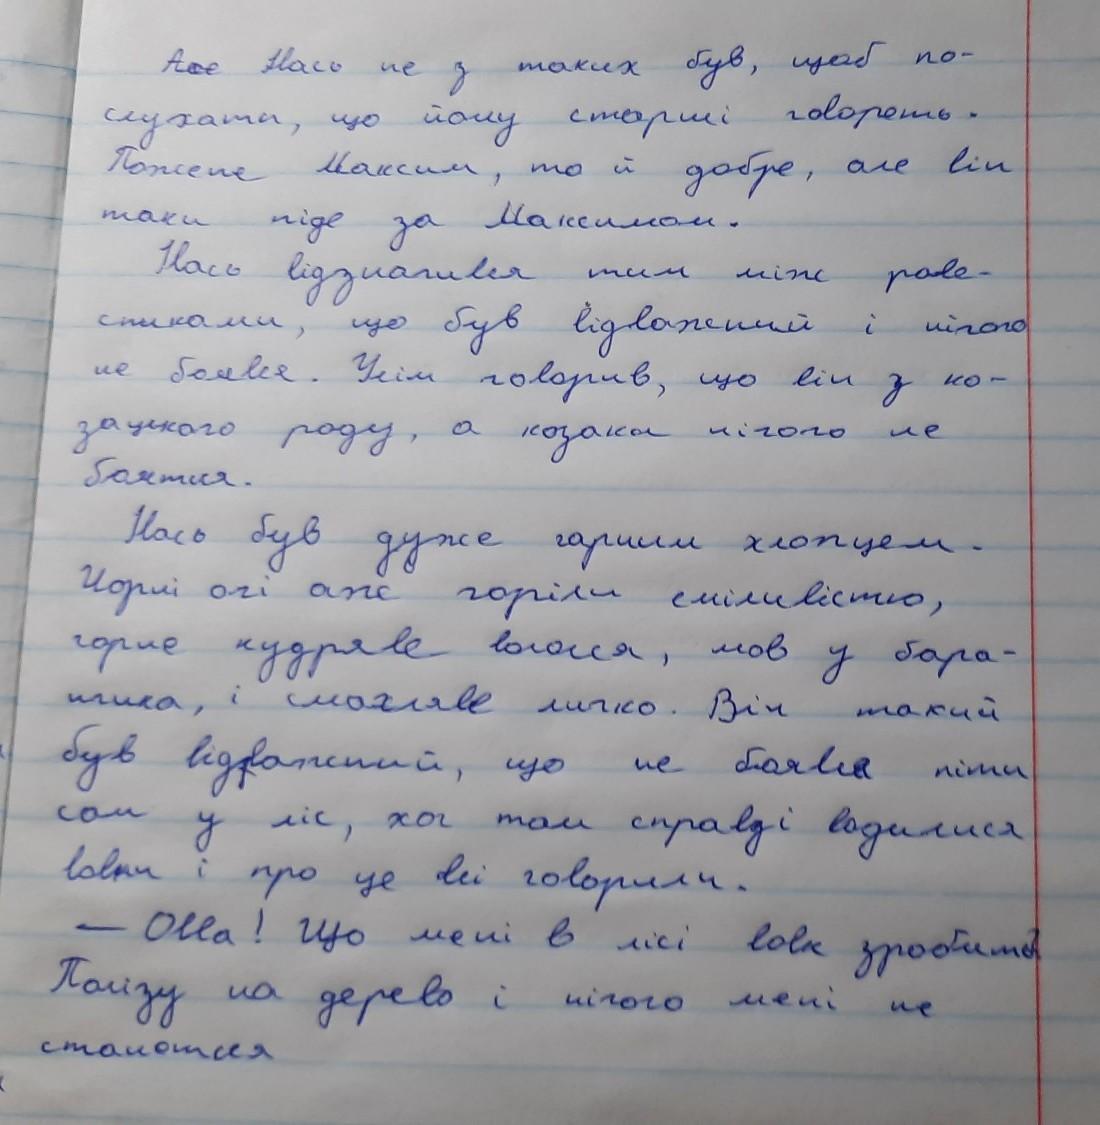 Але Нась не з таких був, щоб по-
слухати, що йому старші говорять.
Пожене Максим, то й добре, але він
таки піде за Максимом.
Нась відзначився тим між рове-
сниками, що був відважний і нічого
не боявся. Усім говорив, що він з ко-
зацького роду, а козаки нічого не
бояться.
Нась був дуже гарним хлопцем.
Чорні очі аж горіли сміливістю,
чорне кудряве волосся, мов у бара-
нчика, і смагляве личко. Він такий
був відважний, що не боявся піти
сам у ліс, хоч там справді водилися
вовки і про це всі говорили.
— Овва! Що мені в лісі вовк зробить?
Полізу на дерево і нічого мені не
станеться